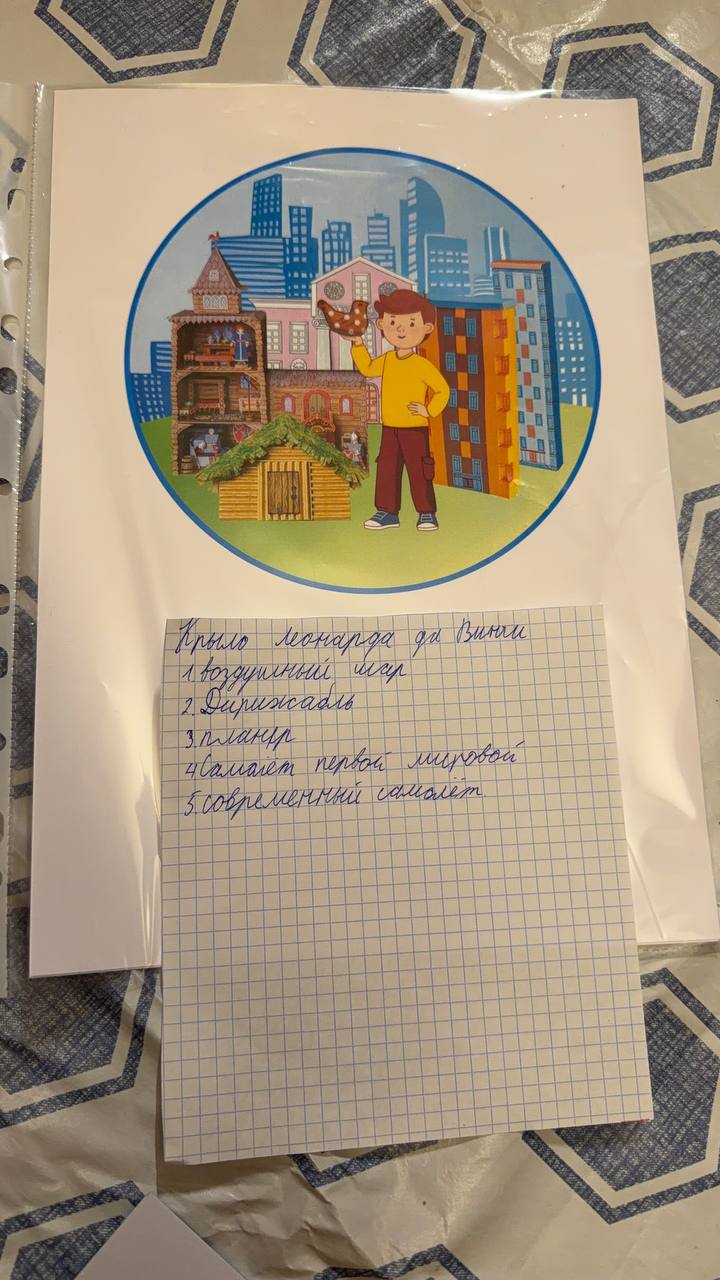 Крыло леонарда да Винчи
1. воздушный шар
2. Дирижабль
3. планер
4 Самолёт первой мировой
5. современный самолёт